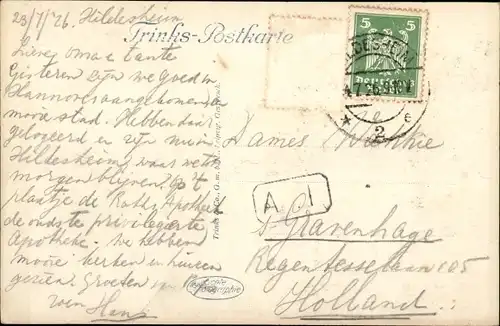 23/7/'26. Hildesheim
Trinks-Postkarte
Lieve oma e tante
Gisteren zijn we goed in
Hannover aangekomen, in
mooie stad. Hebben daar
gelogeerd en zijn nu in
Hildesheim, waar we tot
morgen blijven. Op 't
plaatje de Rats Apotheke
de oudste privilegierte
Apotheke. We hebben
mooie kerken en huizen
gezien. Groeten
van Hans
Trinks & Co., G. m. b. H., Leipzig
5 5
HILDESHEIM
.7.26.
* 2 e
Dames
A I
's Gravenhage
Regentesselaan 05
Holland.
Echte Photographie